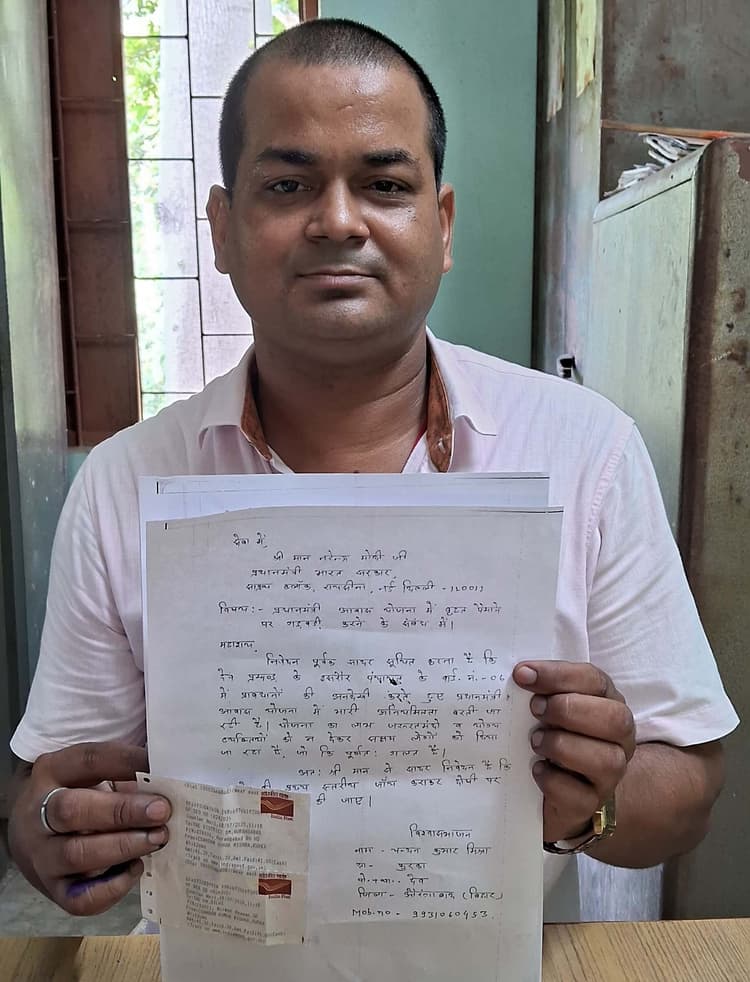 सेवा में,
श्री मान नरेन्द्र मोदी जी
प्रधानमंत्री भारत सरकार,
साउथ ब्लॉक, रायसीना, नई दिल्ली - 110011
विषय :- प्रधानमंत्री आवास योजना में वृहत पैमाने
पर गड़बड़ी करने के संबंध में।
महाशय,
निवेदन पूर्वक सादर सूचित करना है कि
देव प्रखण्ड के इसरौर पंचायत के वार्ड नं.-06
में प्रावधानों की अनदेखी करते हुए प्रधानमंत्री
आवास योजना में भारी अनियमितता बरती जा
रही है। योजना का लाभ जरूरतमंदो व योग्य
व्यक्तियों को न देकर सक्षम लोगों को दिया
जा रहा है, जो कि पूर्णत: गलत है।
अत: श्री मान से सादर निवेदन है कि
की उच्च स्तरीय जाँच कराकर दोषी पर
की जाए।
विश्वासभाजन
नाम - चन्दन कुमार मिश्रा
ग्रा०- कुरका
पो.+था.- देव
जिला - औरंगाबाद (बिहार)
Mob.no - 9931060453.
India Post
India Post